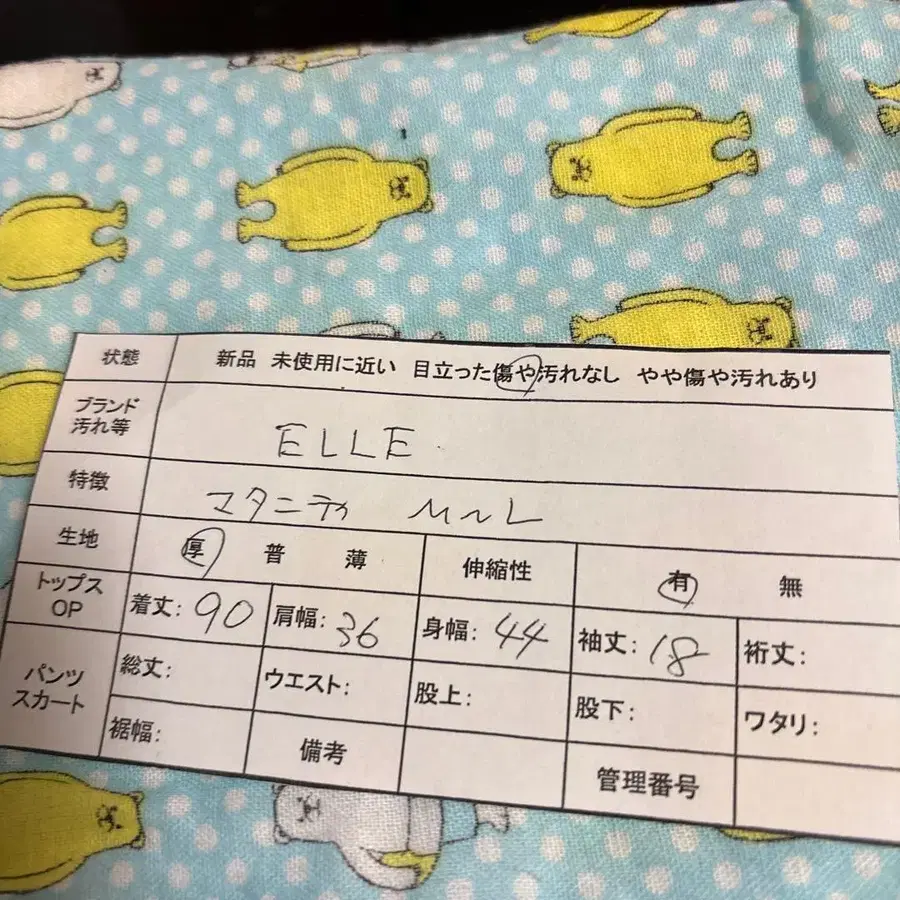 状態 新品 未使用に近い 目立った傷や汚れなし やや傷や汚れあり
ブランド
汚れ等 ELLE
特徴 マタニティ M~L
生地 厚 普 薄 伸縮性 有 無
トップス
OP 着丈: 90 肩幅: 36 身幅: 44 袖丈: 18 裄丈:
パンツ
スカート 総丈: ウエスト: 股上: 股下: ワタリ:
裾幅: 備考 管理番号